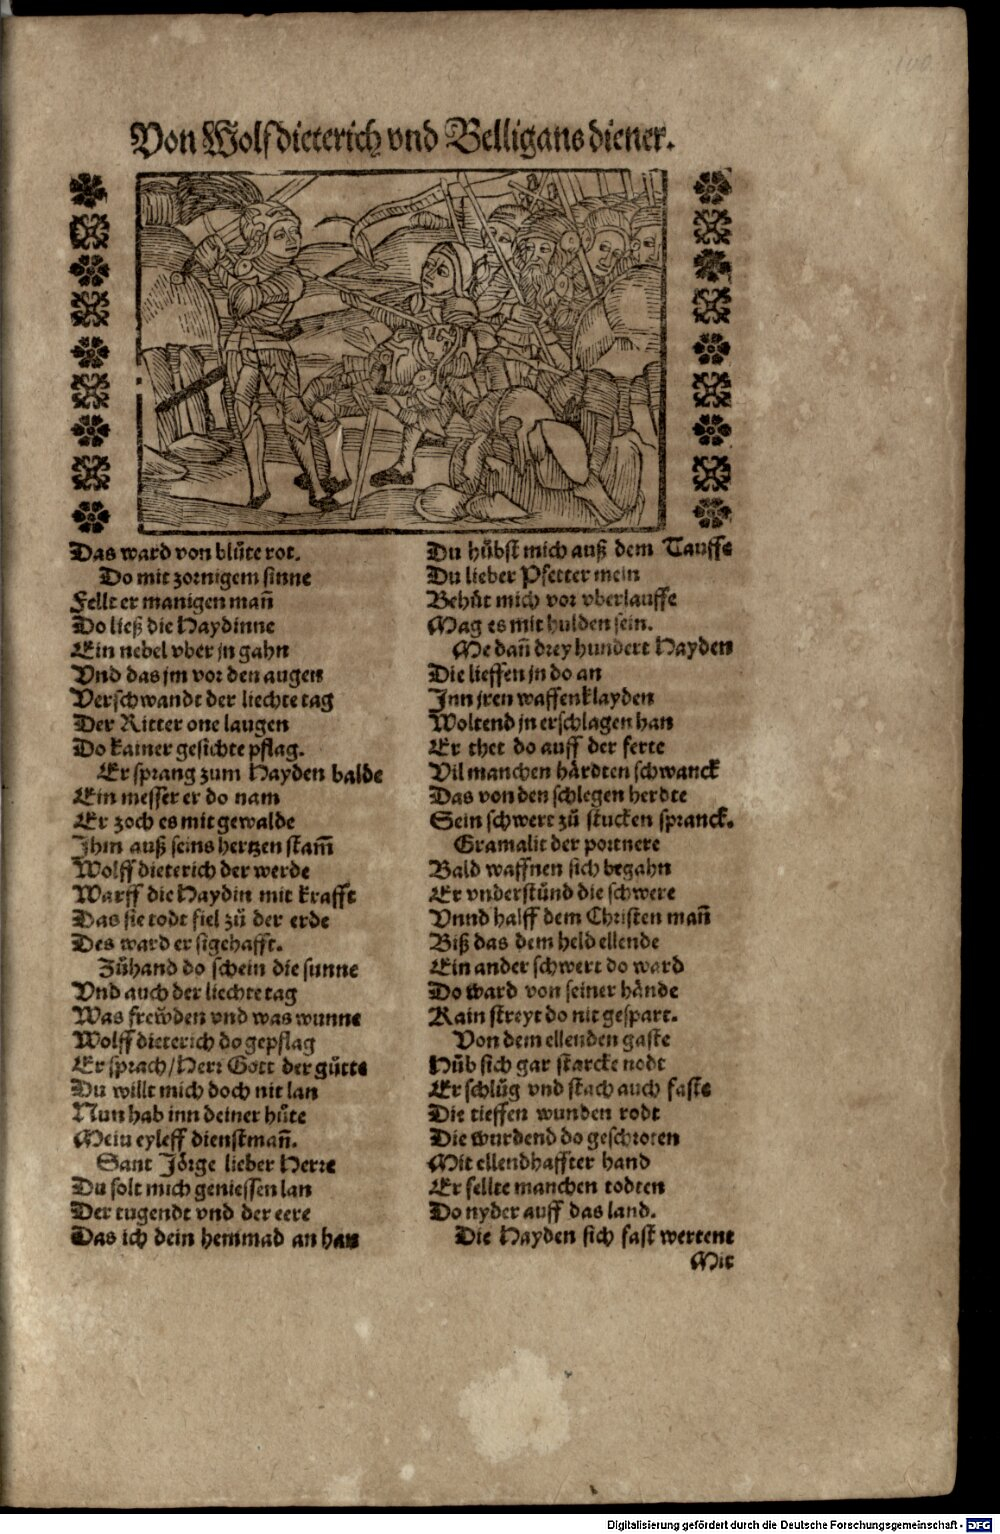 Von Wolfdieterich vnd Belligans diener.
Das ward von blůte rot.
Do mit zornigem sinne
Fellt er manigen mañ
Do ließ die Haydinne
Ein nebel vber jn gahn
Vnd das jm vor den augen
Verschwandt der liechte tag
Der Ritter one laugen
Do kainer gesichte pflag.
Er sprang zum Hayden balde
Ein messer er do nam
Er zoch es mit gewalde
Ihm auß seins hertzen stam̃
Wolff dieterich der werde
Warff die Haydin mit krafft
Das sie todt fiel zů der erde
Des ward er sigehafft.
Zůhand do schein die sunne
Vnd auch der liechte tag
Was frewden vnd was wunne
Wolff dieterich do gepflag
Er sprach/Herr Gott der gůtte
Du willt mich doch nit lan
Nun hab inn deiner hůte
Mein eyleff dienstmañ.
Sant Jörge lieber Herre
Du solt mich geniessen lan
Der tugendt vnd der eere
Das ich dein hemmad an han
Du hůbst mich auß dem Tauffe
Du lieber Pfetter mein
Behůt mich vor vberlauffe
Mag es mit hulden sein.
Me dañ drey hundert Hayden
Die lieffen jn do an
Inn jren waffenklayden
Woltend jn erschlagen han
Er thet do auff der ferte
Vil manchen härdten schwanck
Das von den schlegen herdte
Sein schwert zů stucken spranck.
Gramalit der portnere
Bald waffnen sich begahn
Er vnderstůnd die schwere
Vnnd halff dem Christen mañ
Biß das dem held ellende
Ein ander schwert do ward
Do ward von seiner hände
Kain streyt do nit gespart.
Von dem ellenden gaste
Hůb sich gar starcke nodt
Er schlůg vnd stach auch faste
Die tieffen wunden rodt
Die wurdend do geschroten
Mit ellendhaffter hand
Er fellte manchen todten
Do nyder auff das land.
Die Hayden sich fast wertent
Mit
Digitalisierung gefördert durch die Deutsche Forschungsgemeinschaft - DFG